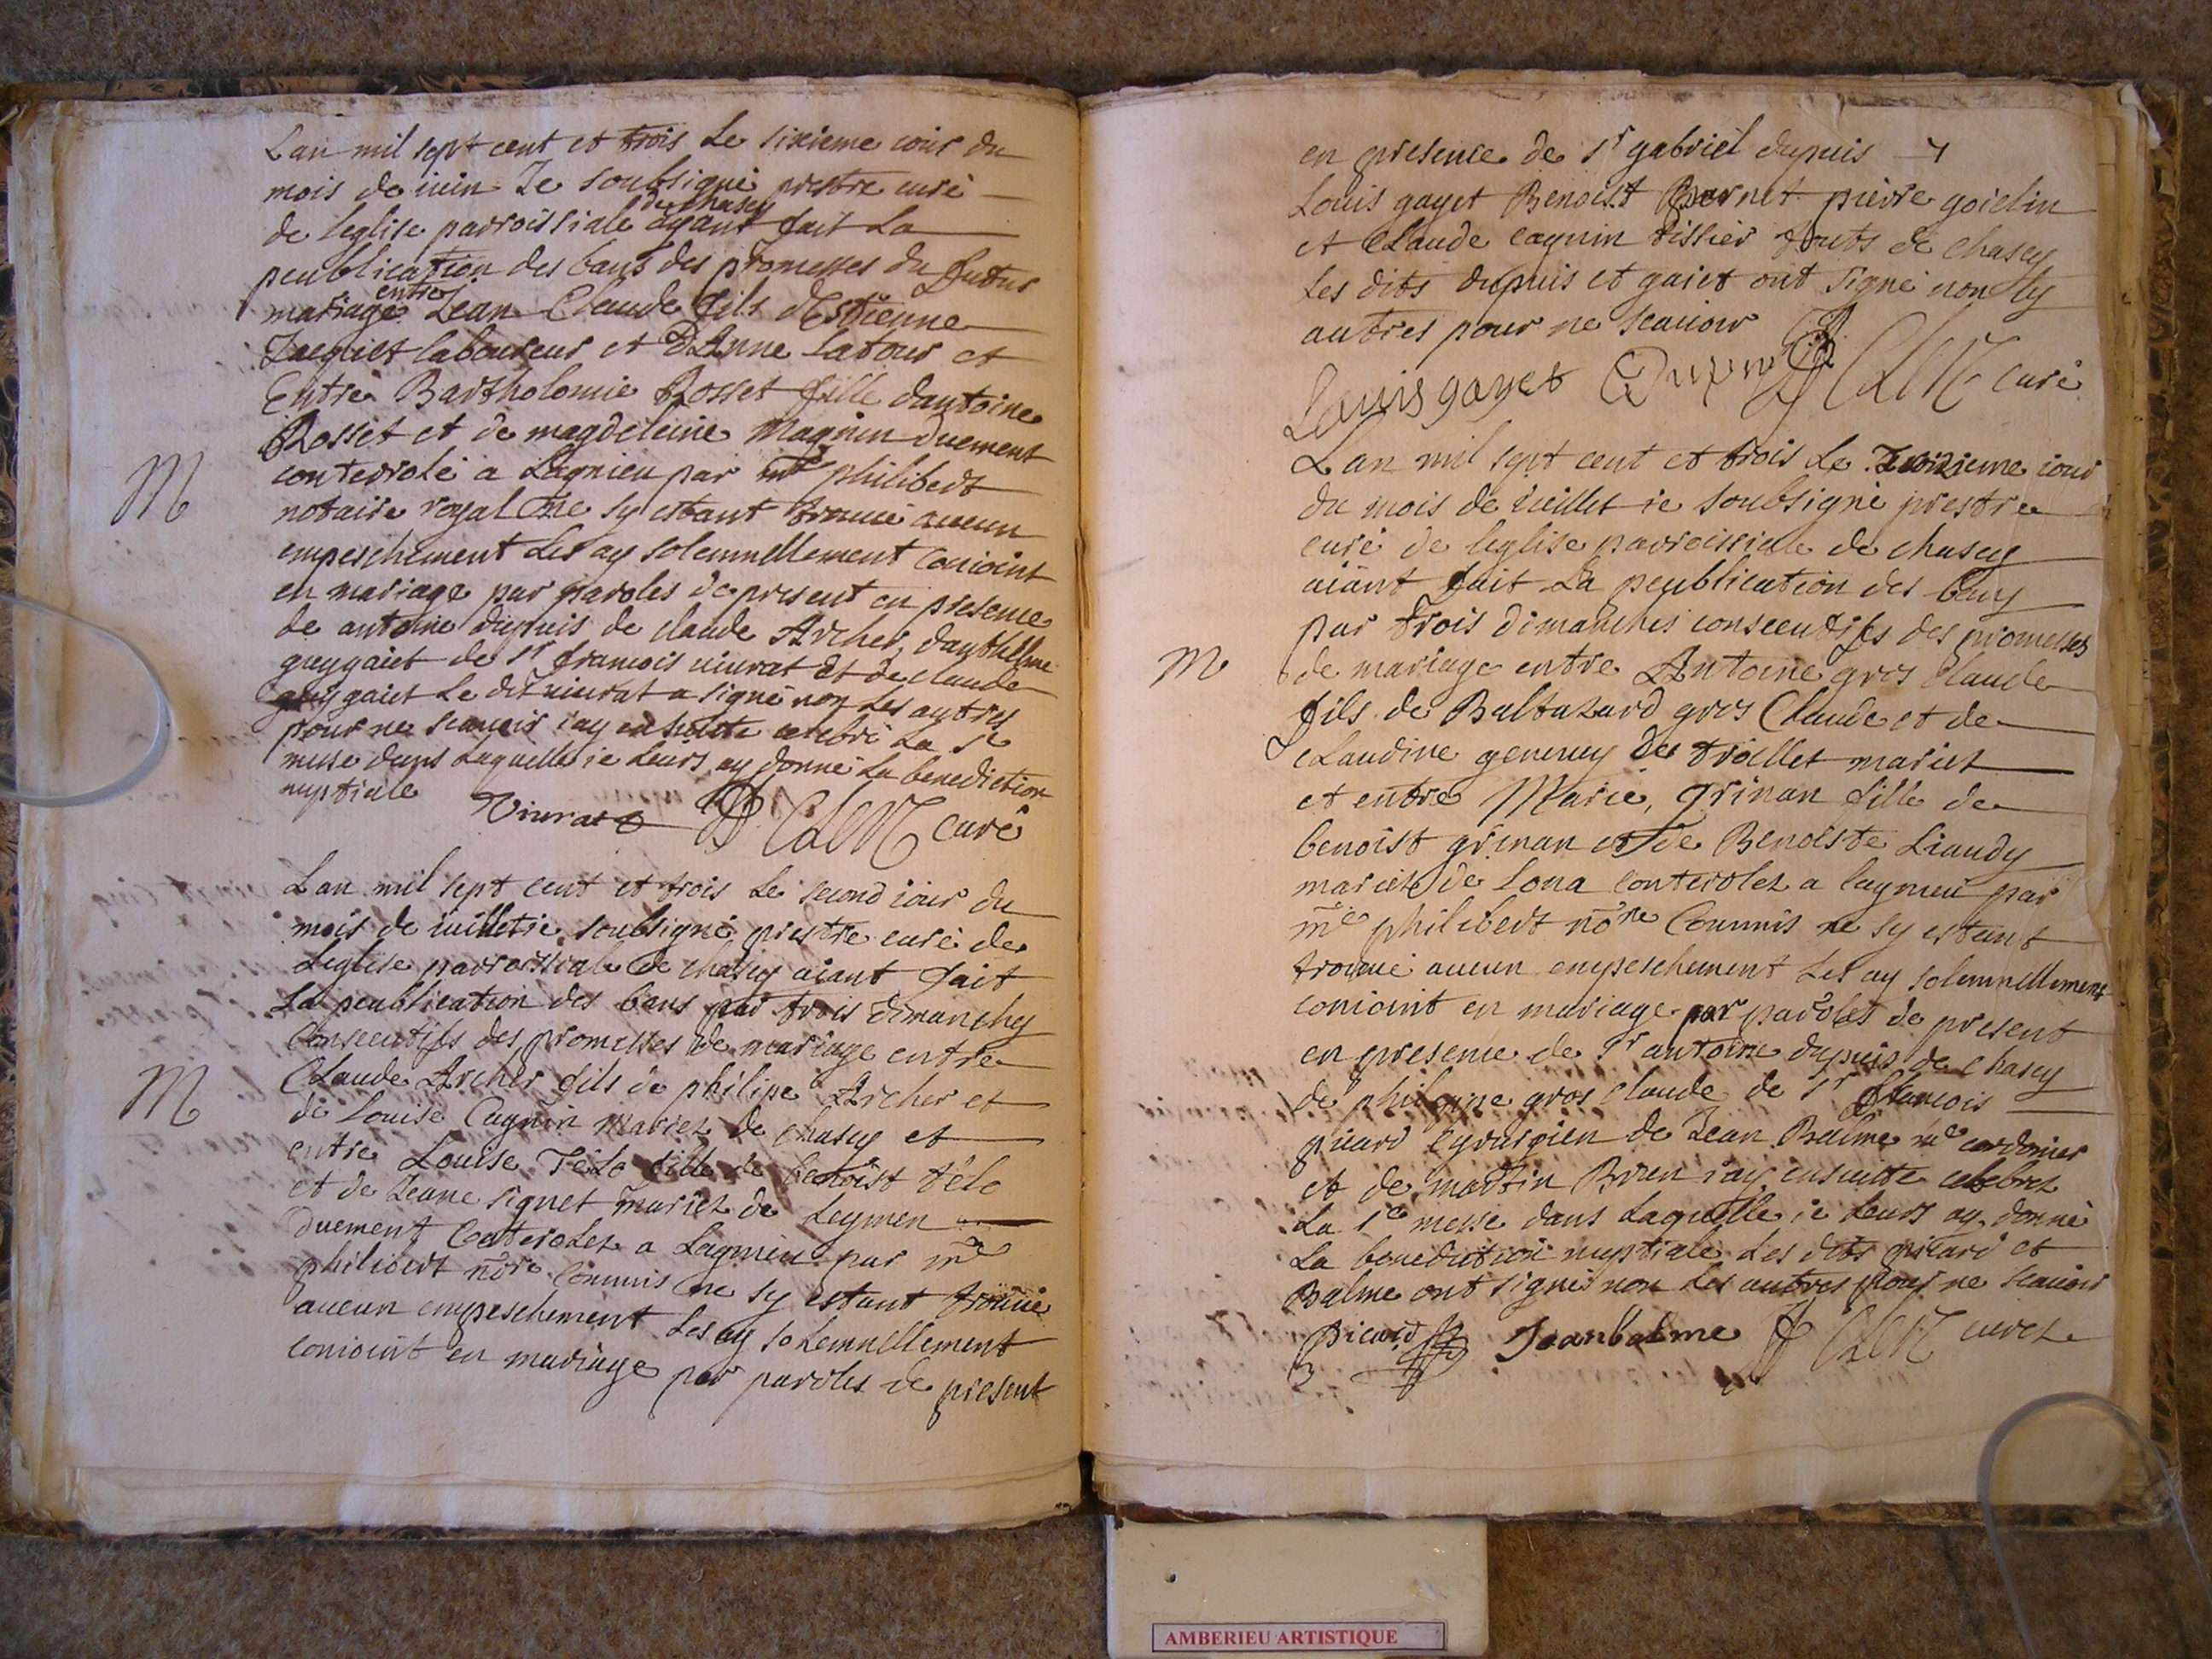 Lan mil sept cent et trois Le sixieme iour du
mois de iuin Je soubsigné prestre curé
de leglise parroissiale de chasey ayant fait La
peublication des bans des promesses du futur
mariage entre Jean Claude fils d'Estienne
Jacquet laboureur et D'Anne latour et
Entre Bartholomie Rosset fille dantoine
Rosset et de magdeleine Magnin duement
M
conterrolé a Lagnieu par me philibert
notaire royal Ne sy estant trouué aucun
empeschement Les ay solemnellement Conioint
en mariage par paroles de present en presence
de antoine dupuis de claude Archer, danthelme
guygaiet de sr francois uiurat et de claude
guygaiet Le dit uiurat a signé non Les autres
pour ne scauoir iay ensuitte celebré La ste
messe dans Laquelle ie Leurs ay donné La benediction
nuptiale
Viurat curé
Lan mil sept cent et trois Le second iour du
mois de iuillet ie soubsigné prestre curé de
Leglise parroissiale de chasey aiant fait
La peublication des bans par trois dimanches
Consecutifs des promesses de mariage entre
M
Claude Archer fils de philipe Archer et
de Louise Cagnin Mariez de chasey et
entre Louise Télo fille de benoist télo
et de Jeane signet mariez de Leymen
duement Conterolez a Lagnieu par me
philibert nore Commis ne sy estant trouué
aucun empeschement Les ay solemnellement
conioint en mariage par paroles de present
en presence de sr gabriel dupuis
Louis gayet Benoist Bernet pierre goiclin
et Claude cagnin tissier touts de chasey
Les dits dupuis et gaiet ont signé non les
autres pour ne scauoir
Louis gayet Dupuis curé
Lan mil sept cent et trois Le Troizieme iour
du mois de iuillet ie soubsigné prestre
curé de leglise parroissiale de chasey
aiant fait La peublication des bans
par trois dimanches consecutifs des promesses
M
de mariage entre Antoine gros Claude
fils de Baltazard gros Claude et de
Claudine de troillet mariet
et entre Marie, grinan fille de
benoist grinan et de Benoiste Liaudy
mariez de Lona conterolez a lagnieu par
me philibert nore Commis ne sy estant
trouué aucun empeschement Les ay solemnellement
conioint en mariage par paroles de present
en presence de sr antoine dupuis de Chasey
de philippe gros claude de sr francois
picard de Jean Balme me cordonier
et de martin Brun iay ensuitte celebrez
La ste messe dans Laquelle ie Leurs ay donné
La benediction nuptiale Les dits picard et
Balme ont signés non Les autres pour ne scauoir
Picard Jeanbalme curez
AMBERIEU ARTISTIQUE